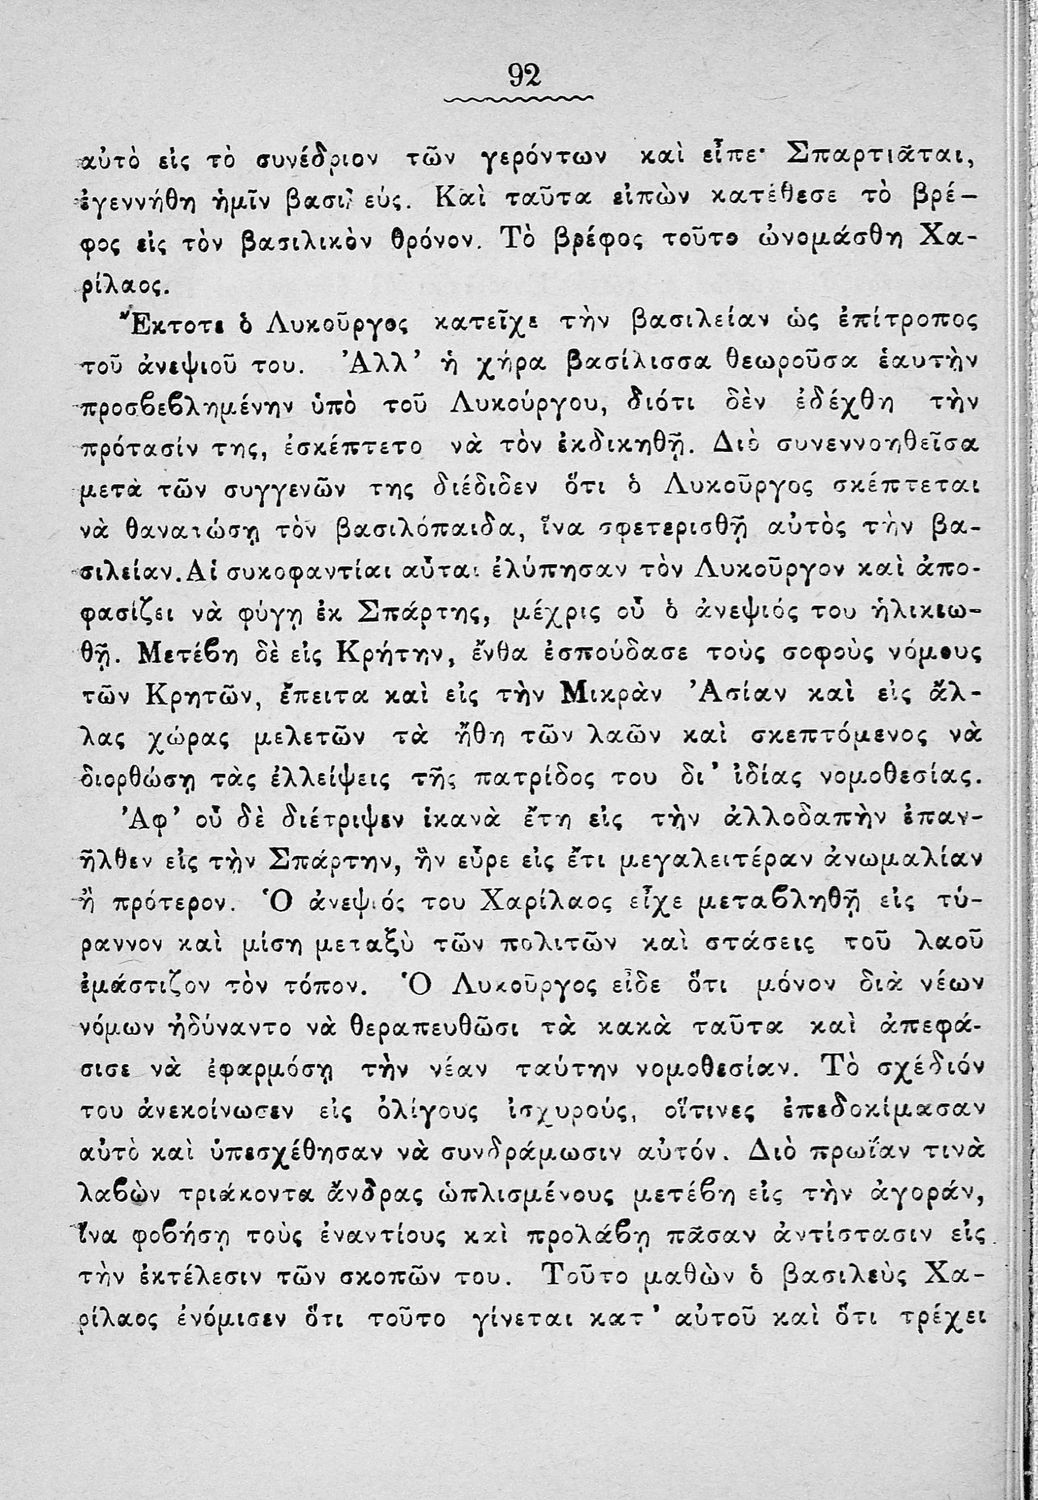 92
αὐτὸ εἰς τὸ συνέδριον τῶν γερόντων καὶ εἶπε· Σπαρτιᾶται,
ἐγεννήθη ἡμῖν βασιλεύς. Καὶ ταῦτα εἰπὼν κατέθεσε τὸ βρέ-
φος εἰς τὸν βασιλικὸν θρόνον. Τὸ βρέφος τοῦτο ὠνομάσθη Χα-
ρίλαος.
Ἔκτοτε ὁ Λυκοῦργος κατεῖχε τὴν βασιλείαν ὡς ἐπίτροπος
τοῦ ἀνεψιοῦ του. Ἀλλ' ἡ χήρα βασίλισσα θεωροῦσα ἑαυτὴν
προσβεβλημένην ὑπὸ τοῦ Λυκούργου, διότι δὲν ἐδέχθη τὴν
πρότασίν της, ἐσκέπτετο νὰ τὸν ἐκδικηθῇ. Διὸ συνεννοηθεῖσα
μετὰ τῶν συγγενῶν της διέδιδεν ὅτι ὁ Λυκοῦργος σκέπτεται
νὰ θανατώσῃ τὸν βασιλόπαιδα, ἵνα σφετερισθῇ αὐτὸς τὴν βα-
σιλείαν. Αἱ συκοφαντίαι αὗται ἐλύπησαν τὸν Λυκοῦργον καὶ ἀπο-
φασίζει νὰ φύγῃ ἐκ Σπάρτης, μέχρις οὗ ὁ ἀνεψιός του ἡλικιω-
θῇ. Μετέβη δὲ εἰς Κρήτην, ἔνθα ἐσπούδασε τοὺς σοφοὺς νόμους
τῶν Κρητῶν, ἔπειτα καὶ εἰς τὴν Μικρὰν Ἀσίαν καὶ εἰς ἄλ-
λας χώρας μελετῶν τὰ ἤθη τῶν λαῶν καὶ σκεπτόμενος νὰ
διορθώσῃ τὰς ἐλλείψεις τῆς πατρίδος του δι' ἰδίας νομοθεσίας.
Ἀφ' οὗ δὲ διέτριψεν ἱκανὰ ἔτη εἰς τὴν ἀλλοδαπὴν ἐπαν-
ῆλθεν εἰς τὴν Σπάρτην, ἣν εὗρε εἰς ἔτι μεγαλειτέραν ἀνωμαλίαν
ἢ πρότερον. Ὁ ἀνεψιός του Χαρίλαος εἶχε μεταβληθῇ εἰς τύ-
ραννον καὶ μίση μεταξὺ τῶν πολιτῶν καὶ στάσεις τοῦ λαοῦ
ἐμάστιζον τὸν τόπον. Ὁ Λυκοῦργος εἶδε ὅτι μόνον διὰ νέων
νόμων ἠδύναντο νὰ θεραπευθῶσι τὰ κακὰ ταῦτα καὶ ἀπεφά-
σισε νὰ ἐφαρμόσῃ τὴν νέαν ταύτην νομοθεσίαν. Τὸ σχέδιόν
του ἀνεκοίνωσεν εἰς ὀλίγους ἰσχυρούς, οἵτινες ἐπεδοκίμασαν
αὐτὸ καὶ ὑπεσχέθησαν νὰ συνδράμωσιν αὐτόν. Διὸ πρωΐαν τινὰ
λαβὼν τριάκοντα ἄνδρας ὡπλισμένους μετέβη εἰς τὴν ἀγοράν,
ἵνα φοβήσῃ τοὺς ἐναντίους καὶ προλάβῃ πᾶσαν ἀντίστασιν εἰς
τὴν ἐκτέλεσιν τῶν σκοπῶν του. Τοῦτο μαθὼν ὁ βασιλεὺς Χα-
ρίλαος ἐνόμισεν ὅτι τοῦτο γίνεται κατ' αὐτοῦ καὶ ὅτι τρέχει